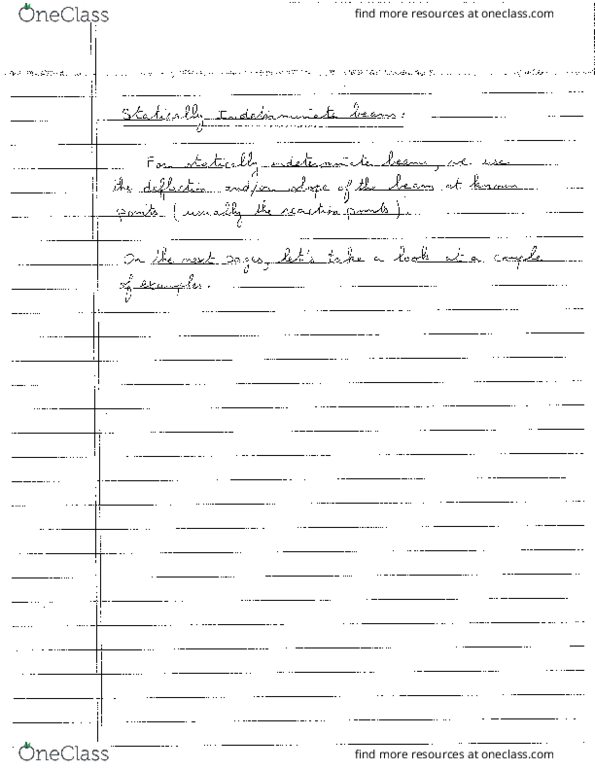 OneClass
find more resources at oneclass.com
Statically Indeterminate beams:
For statically indeterminate beams, we use
the deflection and/or slope of the beam at known
points (usually the reaction points).
On the next pages, let's take a look at a couple
of examples.
OneClass
find more resources at oneclass.com